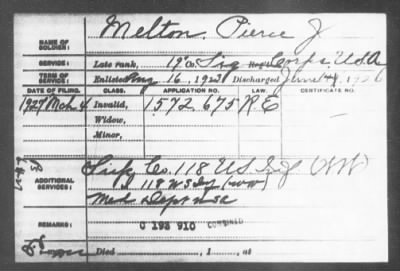 NAME OF SOLDIER: Melton, Pierce J
SERVICE: Late rank, 19" Co Sig Corps, U.S.A
TERM OF SERVICE: Enlisted Aug 16, 1923, Discharged June 4, 1926
DATE OF FILING. CLASS. APPLICATION NO. LAW. CERTIFICATE NO.
1927 Mch 4 Invalid, 1572675 R E
Widow,
Minor,
ADDITIONAL SERVICES: Sup Co. 118 U.S. Inf (WW)
118 U S Inf (WW)
Med Dept USA
REMARKS: C 193 910 COMBINED
Died , 1 , at